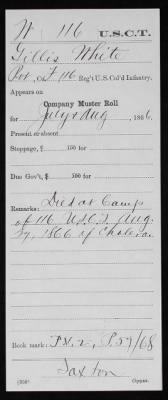 W 116 U.S.C.T.
Gillis White
Pvt, Co. F, 116 Reg't U.S. Col'd Infantry.
Appears on
Company Muster Roll
for July & Aug, 1866
Present or absent
Stoppage, $ 100 for
Due Gov't, $ 100 for
Remarks: Died at Camp
of 116 U.S.C.T. Aug.
27, 1866 of Cholera.
Book mark:
Saxton
(358) Copyist.